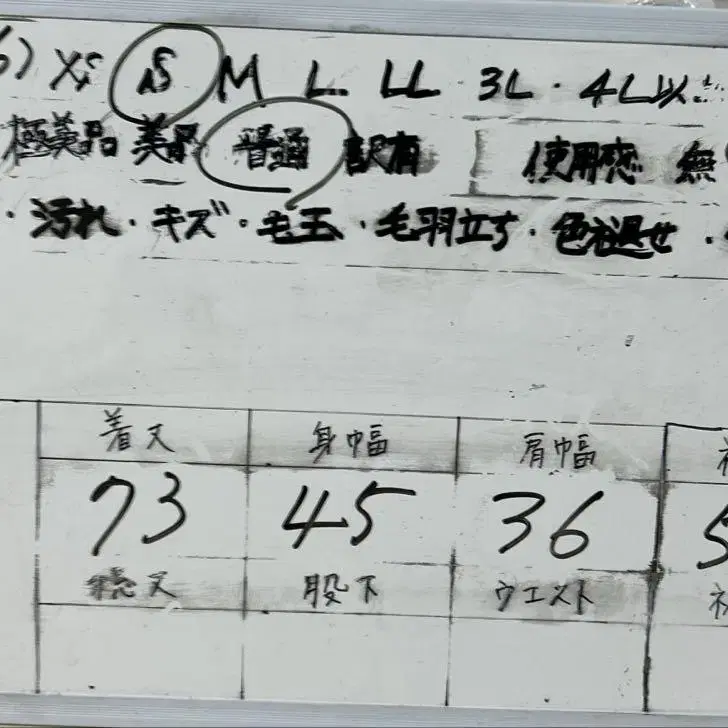 ) XS S M L LL 3L・4L以
極美品 美品 普通 訳有 使用感 無
・汚れ・キズ・毛玉・毛羽立ち・色褪せ・
着丈 身幅 肩幅
73 45 36 5
総丈 股下 ウエスト